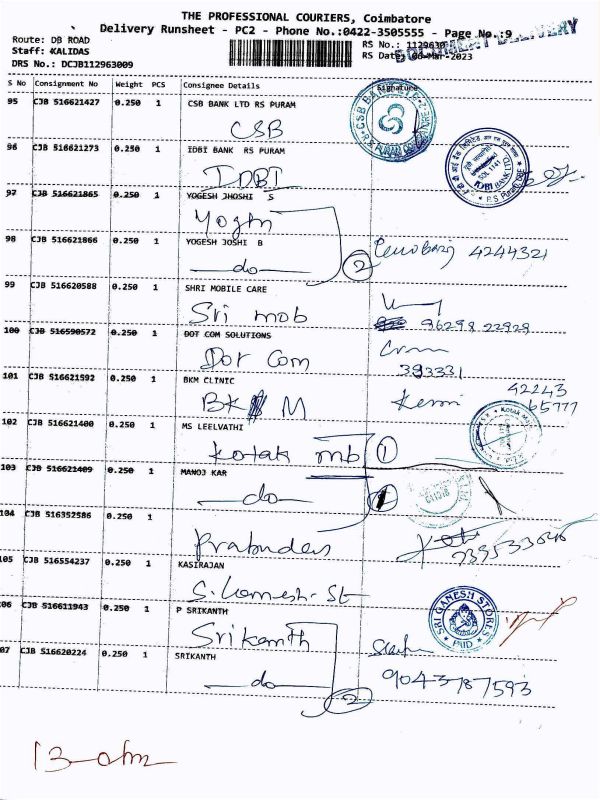 THE PROFESSIONAL COURIERS, Coimbatore
Delivery Runsheet - PC2 - Phone No.:0422-3505555 - Page No.:9
Route: DB ROAD
RS No.: 1129630
Staff: KALIDAS
RS Date: 06-Mar-2023
DOCUMENT DELIVERY
DRS No.: DCJB112963009
S No Consignment No Weight PCS Consignee Details Signature
95 CJB 516621427 0.250 1 CSB BANK LTD RS PURAM
CSB
96 CJB 516621273 0.250 1 IDBI BANK RS PURAM
IDBI
97 CJB 516621865 0.250 1 YOGESH JHOSHI S
Yogh
98 CJB 516621866 0.250 1 YOGESH JOSHI B
4244321
do 2
99 CJB 516620588 0.250 1 SHRI MOBILE CARE
Sri mob
96298 22929
100 CJB 516590572 0.250 1 DOT COM SOLUTIONS
Dot Com
393331
101 CJB 516621592 0.250 1 BKM CLINIC
BK M
42243
65777
102 CJB 516621400 0.250 1 MS LEELVATHI
Kotak mb 1
103 CJB 516621409 0.250 1 MANOJ KAR
do
104 CJB 516352586 0.250 1
105 CJB 516554237 0.250 1 KASIRAJAN
106 CJB 516611943 0.250 1 P SRIKANTH
Srikanth
SRI GANESH STORES
PAID
107 CJB 516620224 0.250 1 SRIKANTH
do 2
9043787593